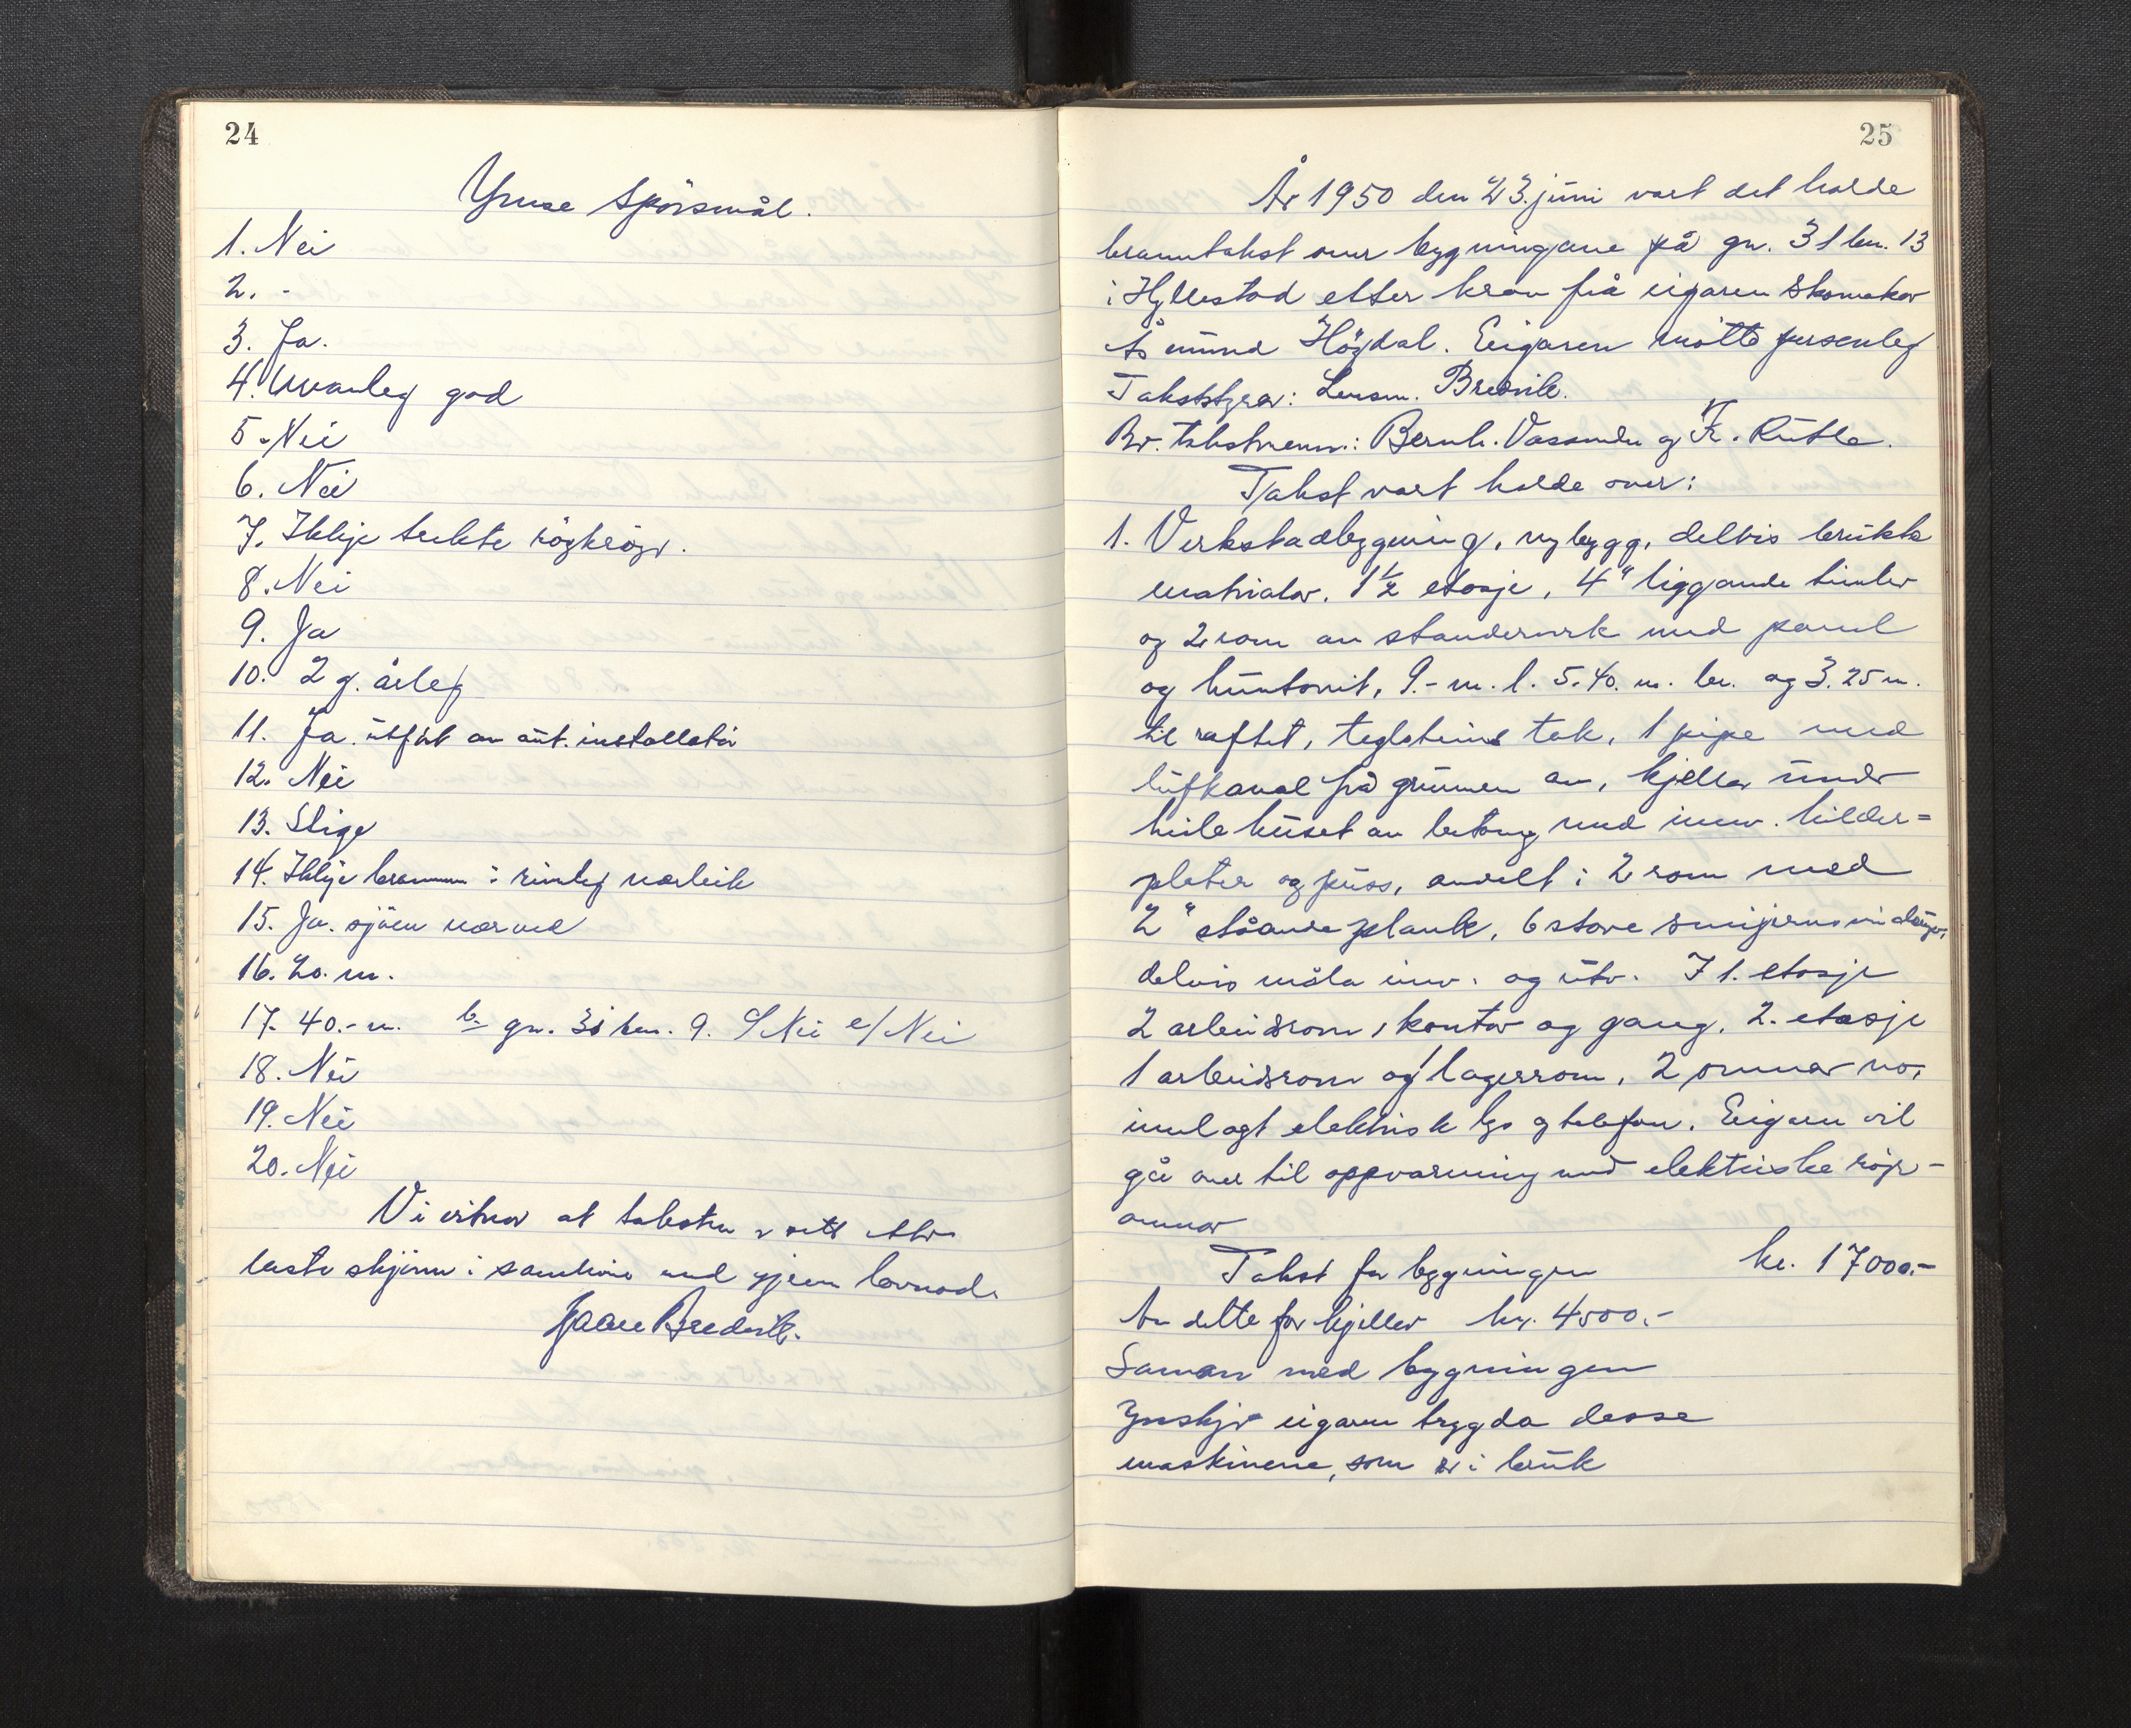 24
Ymse spörsmål.
1. Nei
2. -
3. Ja.
4. Uvanleg god
5. Nei
6. Nei
7. Ikkje trekte röykröyr.
8. Nei
9. Ja
10. 2 g. årleg
11. Ja. utfört av aut. installatör
12. Nei
13. Stige
14. Ikkje brannm i rimleg nærleik
15. Ja. sjöen nærved
16. 20. m.
17. 40.- m. b. gn. 31 bnr. 9. c/ Nei e/ Nei
18. Nei
19. Nei
20. Nei
Vi vitnar at taksten er sett etter
beste skjönn i samhöve med gjeven lovnad.
Bredvik.
25
År 1950 den 23. juni vart det halde
branntakst over bygningane på gn. 31 bn. 13
i Hyllestad etter krav frå eigaren skomakar
Åsmund Högdal. Eigaren mötte personleg
Takststyrar: Lensm. Bredvik.
Br. takstmenn: Bernh. Vassenden og Fr. Rutle.
Takst vart halde over:
1. Verkstadbygning, nybygg, delvis brukte
matrialar. 1 1/2 etasje, 4" liggande timber
og 2 rom av standerverk med panel
og huntonit, 9.- m. l. 5.40. m. br. og 3.25 m.
til raftet, teglsteins tak, 1 pipe med
luftkanal frå grunnen av, kjellar under
heile huset av betong med innv. hilder=
plater og puss, avdelt i 2 rom med
2" ståande plank, 6 store smijernsvindauger,
delvis måla innv. og utv. I 1. etasje
2 arbeidsrom, kontor og gang, 2. etasje
1 arbeidsrom og 1 lagerrom, 2 omnar no,
innlagt elektrisk lys og telefon. Eigaren vil
gå over til oppvarming med elektriske röyr-
omnar
Takst for bygningen kr. 17000.-
Av dette for kjellar kr. 4500.-
Saman med bygningen
ynskjer eigaren trygda desse
maskinene, som er i bruk